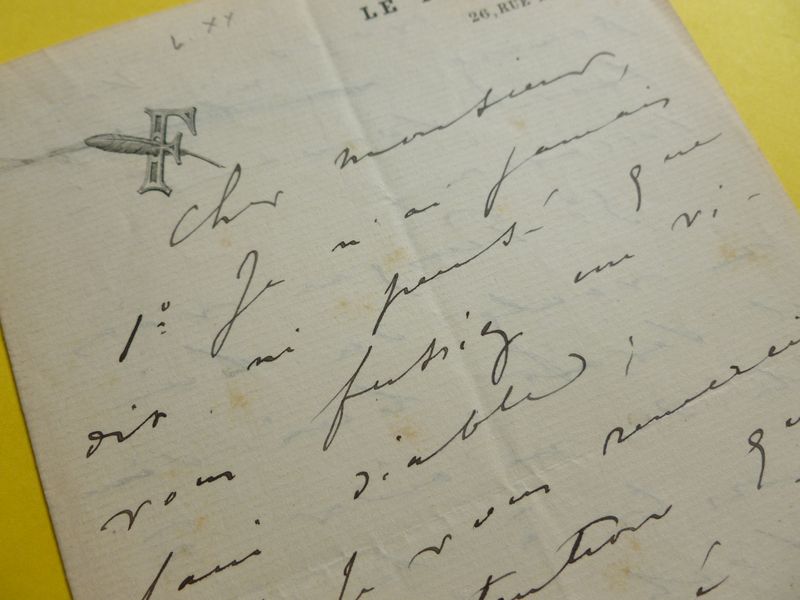 L. XX
LE
26, RUE
F
Cher monsieur,
1º Je n'ai jamais
dit ni pensé que
vous fussiez un vi-
lain diable ;
Je vous remerci